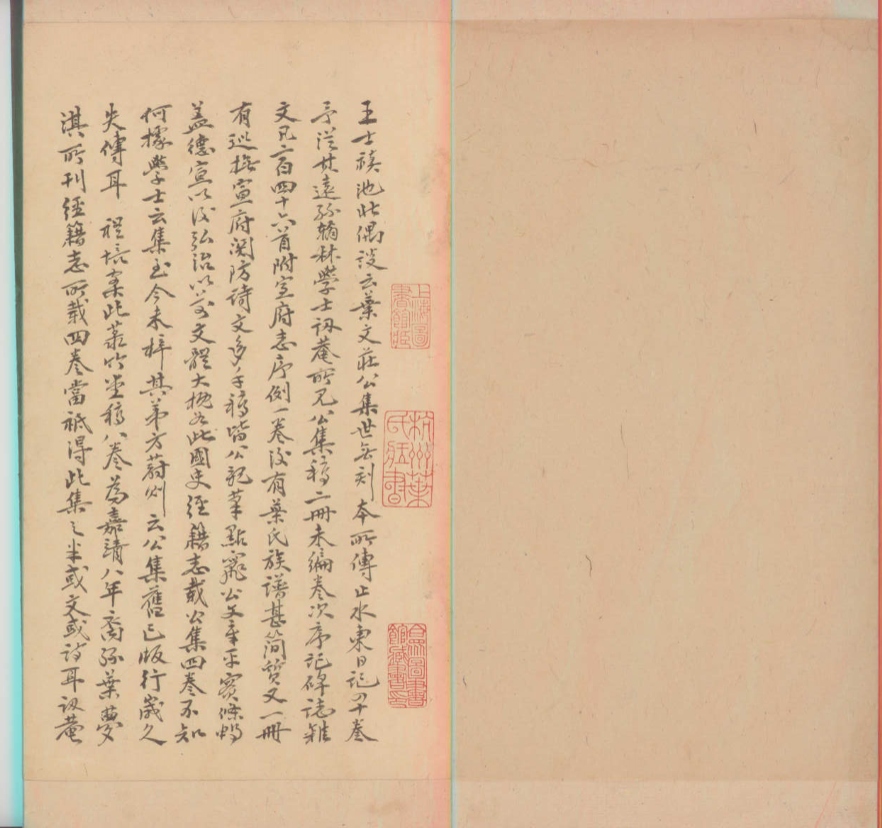 王士禎池北偶談云葉文莊公集世無刻本所傳止水東日記四十卷
予從其遠孫翰林學士訒菴所見公集稿二冊未編卷次序記碑誌雜
文凡二百四十六首附宣府志序例一卷後有葉氏族譜甚簡質又一冊
有巡撫宣府關防詩文多手稿皆公親筆點竄公文章平實條暢
蓋德宣以後弘治以前文體大槪如此國史經籍志載公集四卷不知
何據學士云集至今未梓其弟方蔚則云公集舊已版行歲久
失傳耳 程坑案此菉竹堂稿八卷為嘉靖八年裔孫葉夢
淇所刊經籍志所載四卷當祗得此集之半或文或詩耳訒菴
上海圖書館藏
杭州葉氏藏書
合眾圖書館藏書印